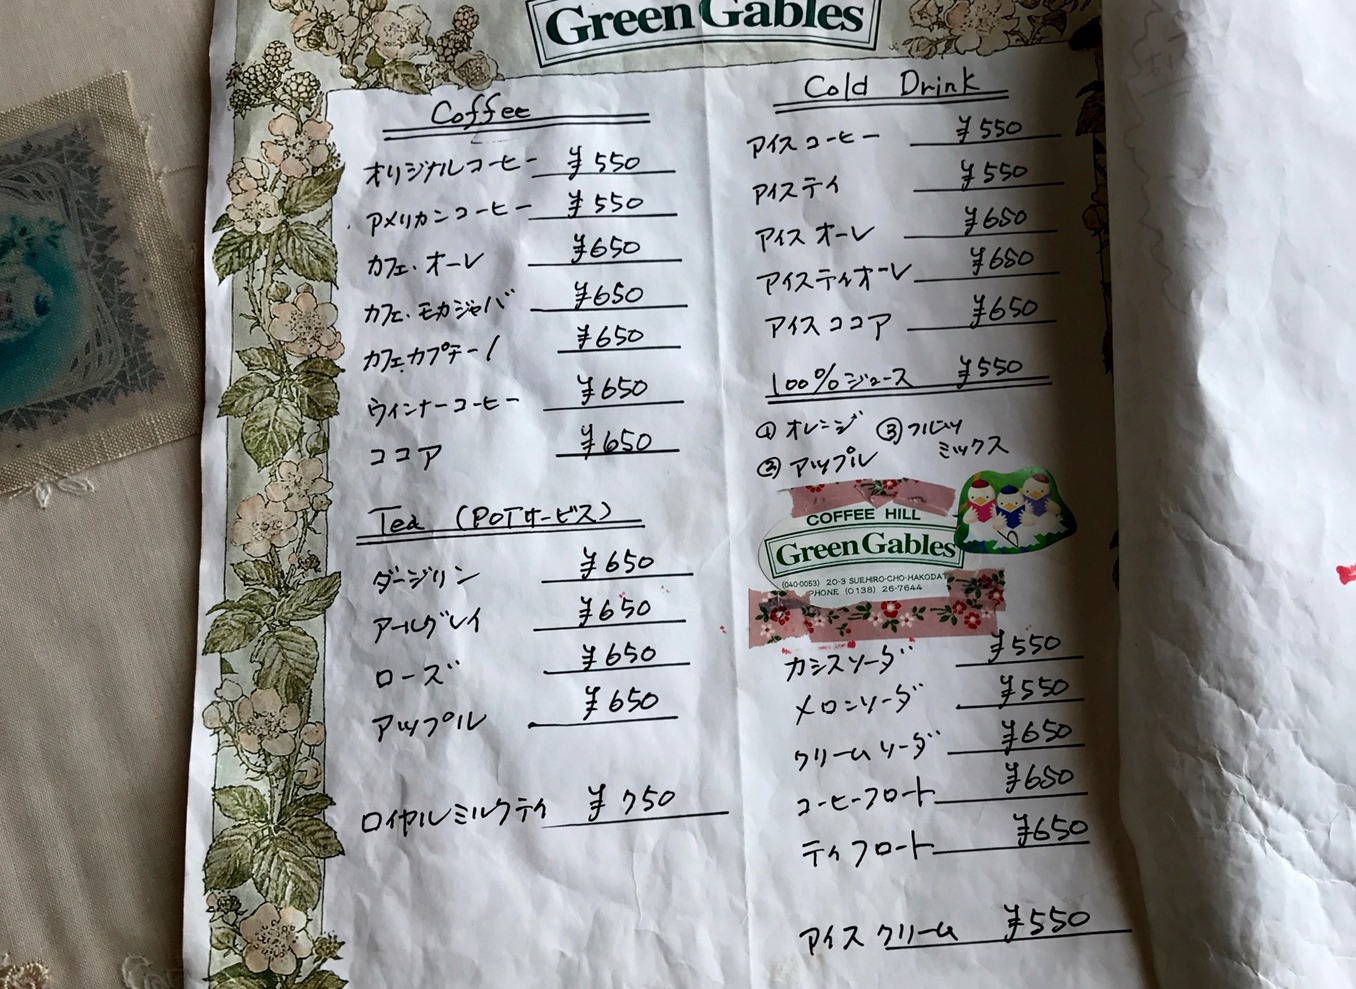 Green Gables
Coffee
オリジナルコーヒー ¥550
アメリカンコーヒー ¥550
カフェ・オーレ ¥650
カフェ・モカジャバ ¥650
カフェカプチーノ ¥650
ウインナーコーヒー ¥650
ココア ¥650
Tea (POTサービス)
ダージリン ¥650
アールグレイ ¥650
ローズ ¥650
アップル ¥650
ロイヤルミルクティ ¥750
Cold Drink
アイスコーヒー ¥550
アイスティ ¥550
アイスオーレ ¥650
アイスティオーレ ¥650
アイスココア ¥650
100%ジュース ¥550
① オレンジ ③ フルーツ
② アップル ミックス
COFFEE HILL
Green Gables
(040-0053) 20-3 SUEHIRO-CHO-HAKODAT
PHONE (0138) 26-7644
カシスソーダ ¥550
メロンソーダ ¥550
クリームソーダ ¥650
コーヒーフロート ¥650
ティフロート ¥650
アイスクリーム ¥550